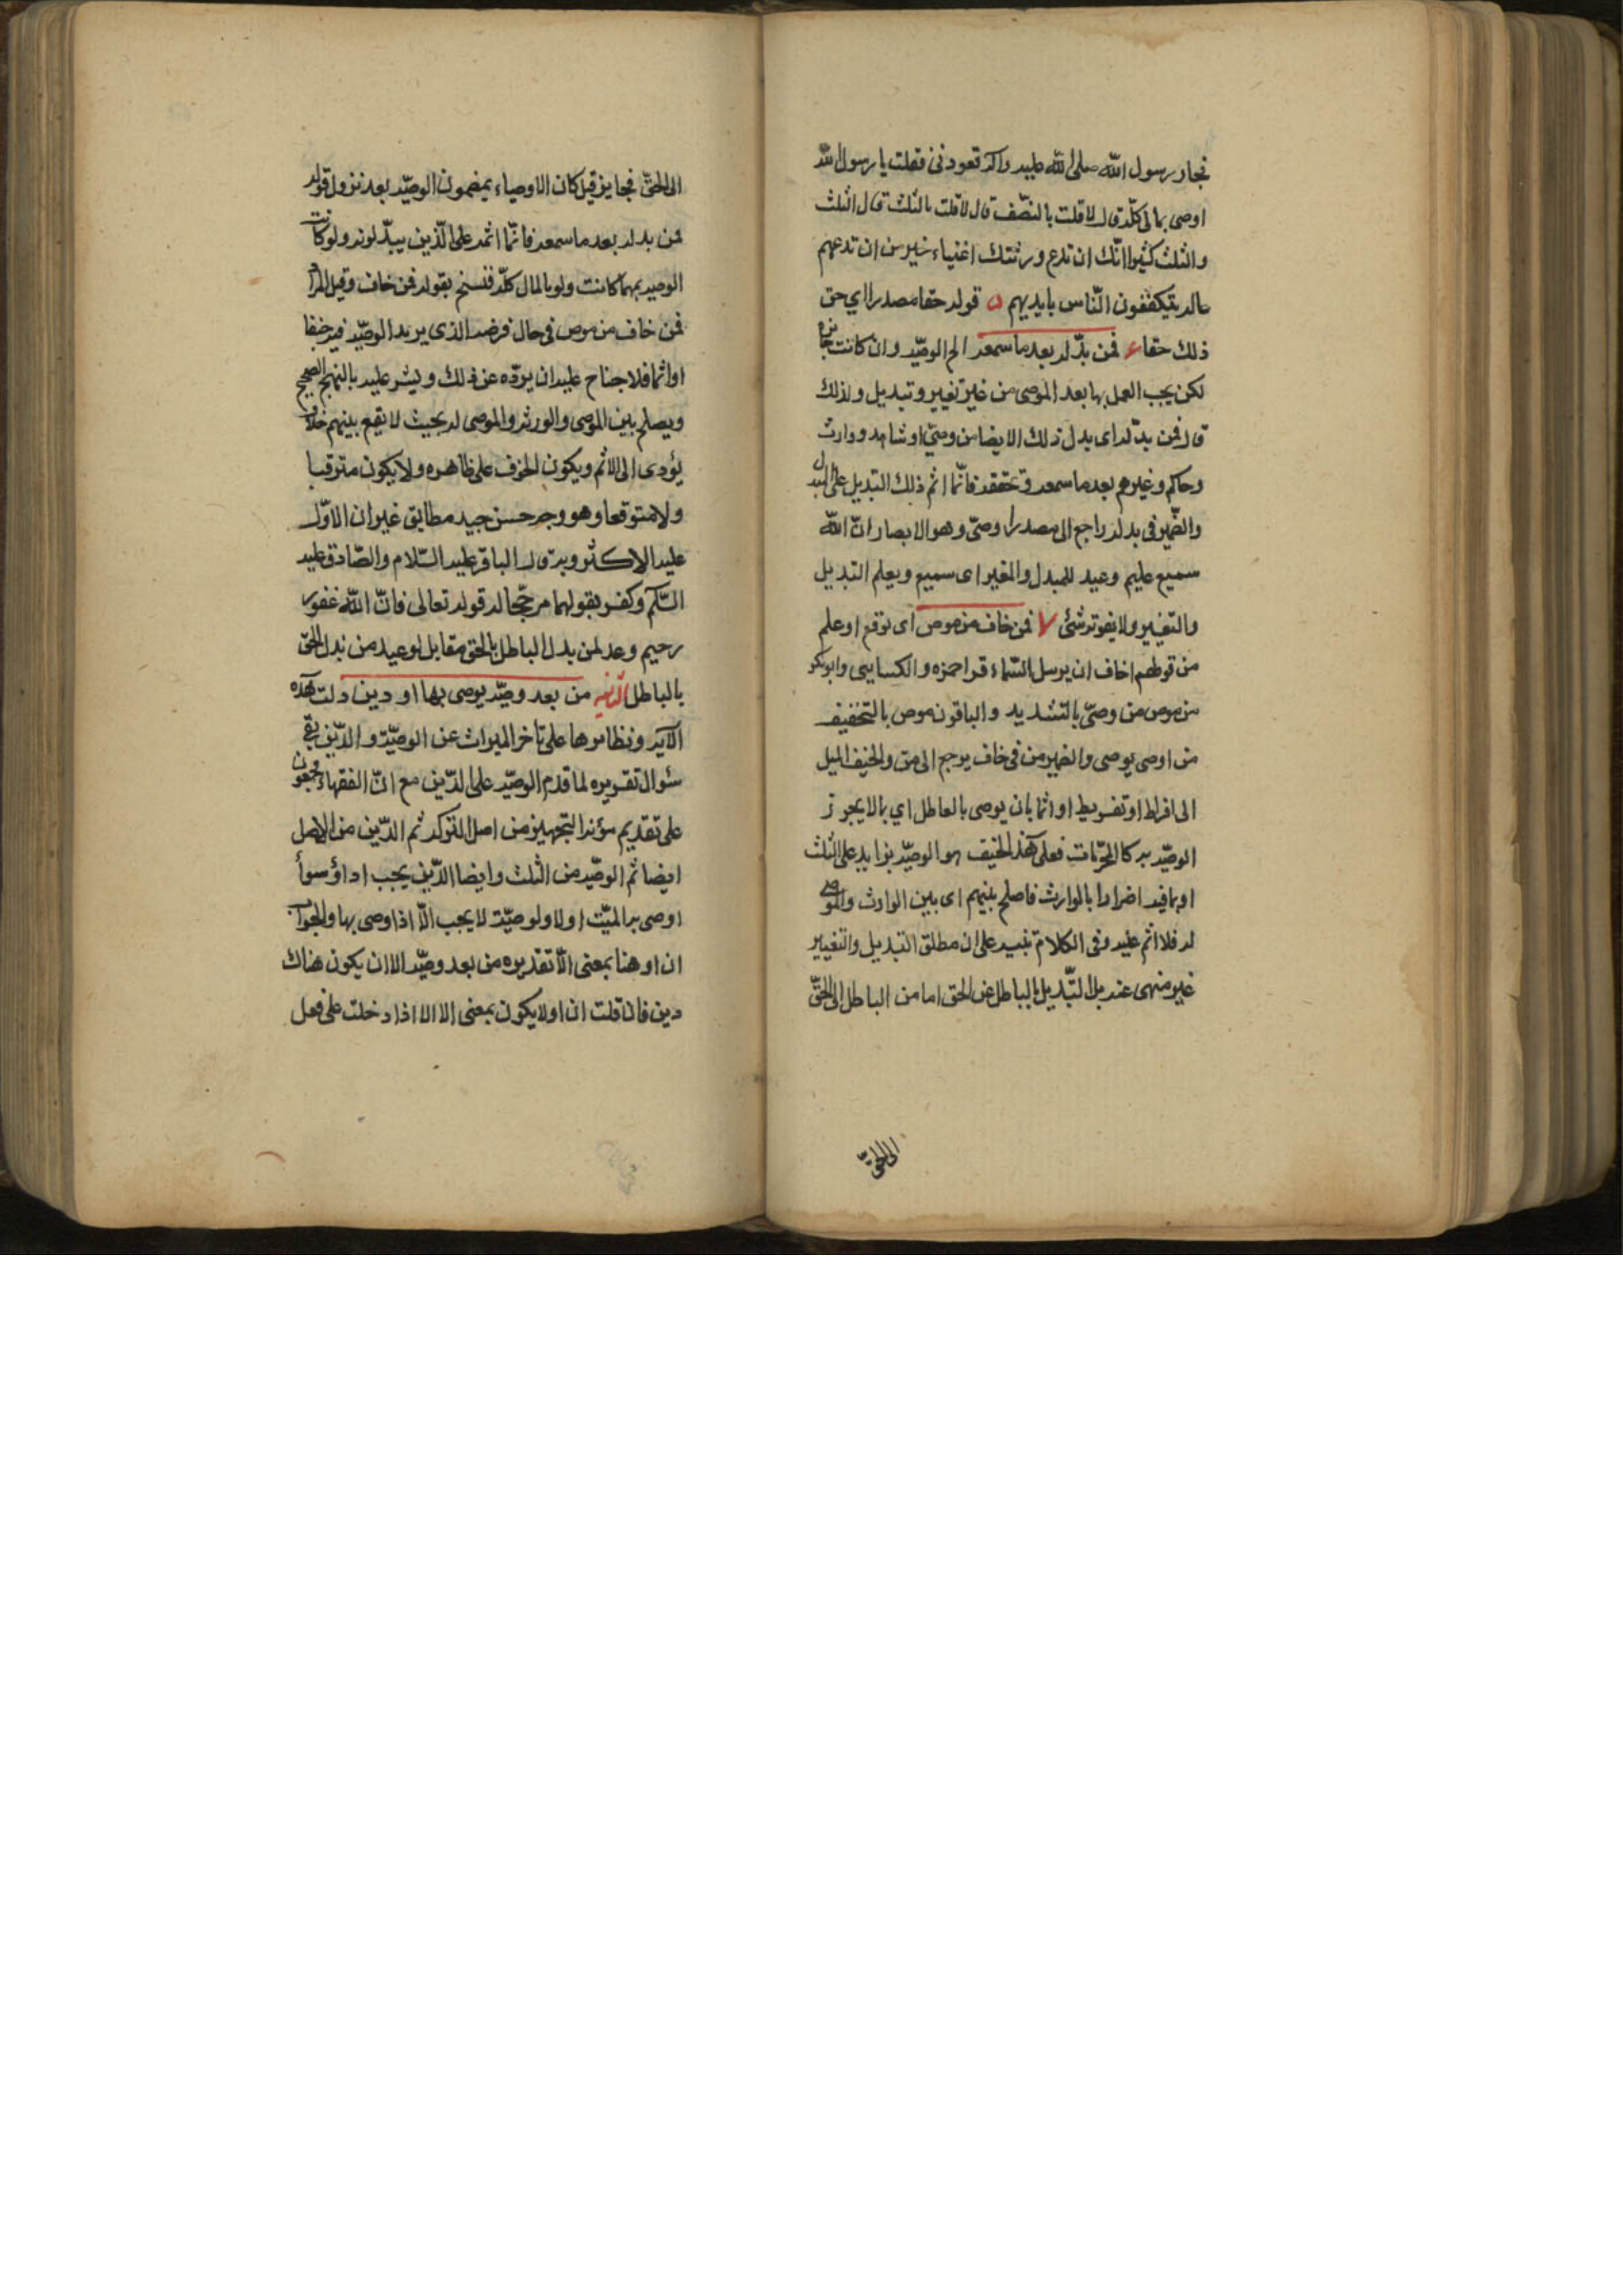 فجاء رسول الله صلى الله عليه وآله تعودنى فقلت يا رسول الله
اوصى بمالى كلّه قال لا قلت بالنّصف قال لا قلت بالثلث قال الثلث
والثلث كثير انّك ان تدع ورثتك اغنياء خير من ان تدعهم
عالة يتكففون النّاس بايديهم ۵ قوله حقا مصدر اي حق
ذلك حقا ۶ فمن بدّله بعد ما سمعه الخ الوصيّة وان كانت جائزة
لكن يجب العمل بها بعد الموصى من غير تغيير وتبديل ولذلك
قال فمن بدّله اى بدل ذلك الايصا من وصىّ او شاهد ووارث
وحاكم وغيرهم بعد ما سمعه وتحققه فانّما اثم ذلك التبديل على المبدل
والضّمير فى بدله راجع الى مصدر اوصىّ وهو الايصار انّ الله
سميع عليم وعيد للمبدل والمغير اى سميع ويعلم التبديل
والتغيير ولا يفوته شئى ۷ فمن خاف من موص اى توقع او علم
من قولهم اخاف ان يرسل السّماء قرا حمزه والكسايى وابوبكر
من موص من وصّى بالتشديد والباقون موص بالتخفيف
من اوصى يوصى والضمير من فى خاف يرجع الى من والحنيف الميل
الى افراط او تفريط او اثما بان يوصى بالعاطل اي بما لا يجوز
الوصيّة به كالمحرّمات فعلى هذا الحنيف هو الوصيّة بزايد على الثلث
او بما فيه اضرارا بالوارث فاصلح بينهم اى بين الوارث والموصى
له فلا اثم عليه وفى الكلام تنبيه على ان مطلق التبديل والتغيير
غير منهى عنه بل التّبديل بالباطل عن الحق اما من الباطل الى الحقّ
الى الحقّ
الى الحقّ فجايز قيل كان الاوصياء يمضون الوصيّة بعد نزول قوله
فمن بدله بعد ما سمعه فانّما اثمه على الّذين يبدّلونه ولو كانت
الوصية بمهما كانت ولو بالمال كلّه فنسخ بقوله فمن خاف وقيل المراد
فمن خاف من موص فى حال مرضه الذى يريد الوصيّة فيه جنفا
او اثما فلا جناح عليه ان يردّه عن ذلك ويشير عليه بالنهج الصحيح
ويصلح بين الموصى والورثه والموصى له بحيث لا يقع بينهم خلاف
يؤدى الى الاثم ويكون الخوف على ظاهره ولا يكون مترقبا
ولا متوقعا وهو وجه حسن جيد مطابق غير ان الاوّل
عليه الاكثر وبه قال الباقر عليه السّلام والصّادق عليه
السّلام وكفى بقولهما مرجّحا له قوله تعالى فانّ الله غفور
رحيم وعد لمن بدل الباطل بالحق مقابل لوعيد من بدل الحق
بالباطل الثانيه من بعد وصيّه يوصى بها او دين دلت هذه
الآية ونظايرها على تاخر الميراث عن الوصيّة والدّين بقى
سئوال تقريره لما قدم الوصيّة على الدّين مع انّ الفقهاء مجمعون
على تقديم مؤنة التجهيز من اصل التركة ثم الدّين من الاصل
ايضا ثم الوصيّة من الثلث وايضا الدّين يجب اداؤه سوأ
اوصى به الميّت او لا ولوصيّة لا يجب الّا اذا اوصى بها والجواب
ان او هنا بمعنى الّا تقديره من بعد وصيّة الا ان يكون هناك
دين فان قلت ان او لا يكون بمعنى الا الا اذا دخلت على فعل